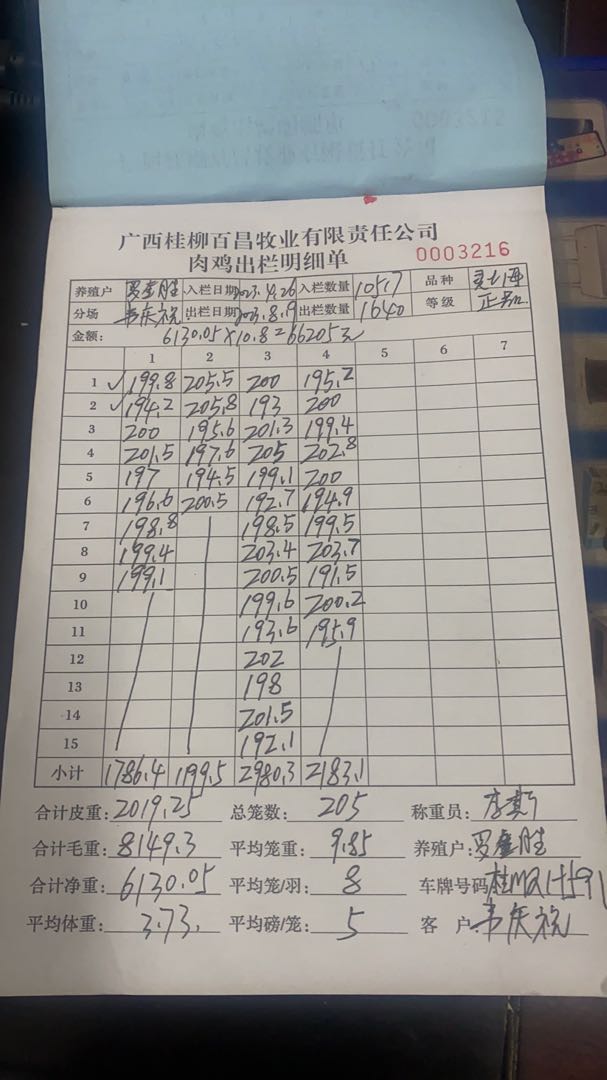 广西桂柳百昌牧业有限责任公司
肉鸡出栏明细单
0003216
养殖户 入栏日期 2023.4.26 入栏数量 10517 品种
分场 韦庆祝 出栏日期 2023.8.19 出栏数量 1640 等级
金额: 6130.05×10.8=66205元
1 2 3 4 5 6 7
1 ✓199.8 205.5 200 195.2
2 ✓194.2 205.8 193 200
3 200 195.6 201.3 199.4
4 201.5 197.6 205 202.8
5 197 194.5 199.1 200
6 196.6 200.5 192.7 194.9
7 198.8 198.5 199.5
8 199.4 203.4 203.7
9 199.1 200.5 191.5
10 199.6 200.2
11 193.6 195.9
12 202
13 198
14 201.5
15 192.1
小计 1786.4 1199.5 2980.3 2183.1
合计皮重: 2019.25 总笼数: 205 称重员:
合计毛重: 8149.3 平均笼重: 9.85 养殖户:
合计净重: 6130.05 平均笼/羽: 8 车牌号码:
平均体重: 3.73 平均磅/笼: 5 客 户: 韦庆祝